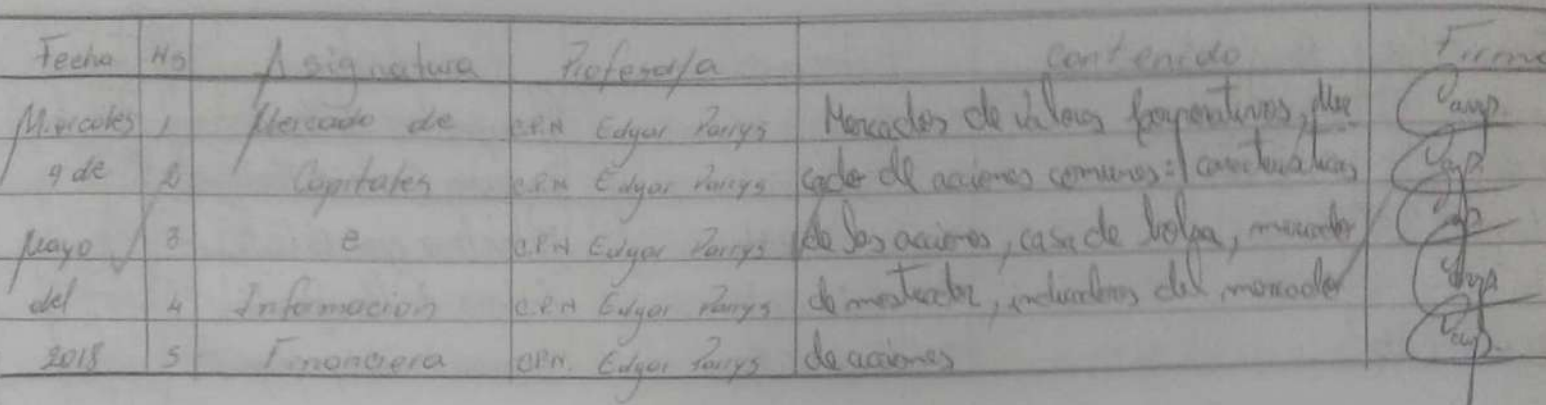 Fecha Hs Asignatura Profesor/a Contenido Firma
Miercoles 1 Mercado de C.P.N Edgar Parrys Mercados de valores Mer
9 de 2 Capitales C.P.N Edgar Parrys cado de acciones comunes: características
Mayo 3 e C.P.N Edgar Parrys de las acciones, casa de bolsa, mercado
del 4 Informacion C.P.N Edgar Parrys de indicadores del mercado
2018 5 Financiera CPN. Edgar Parrys de acciones